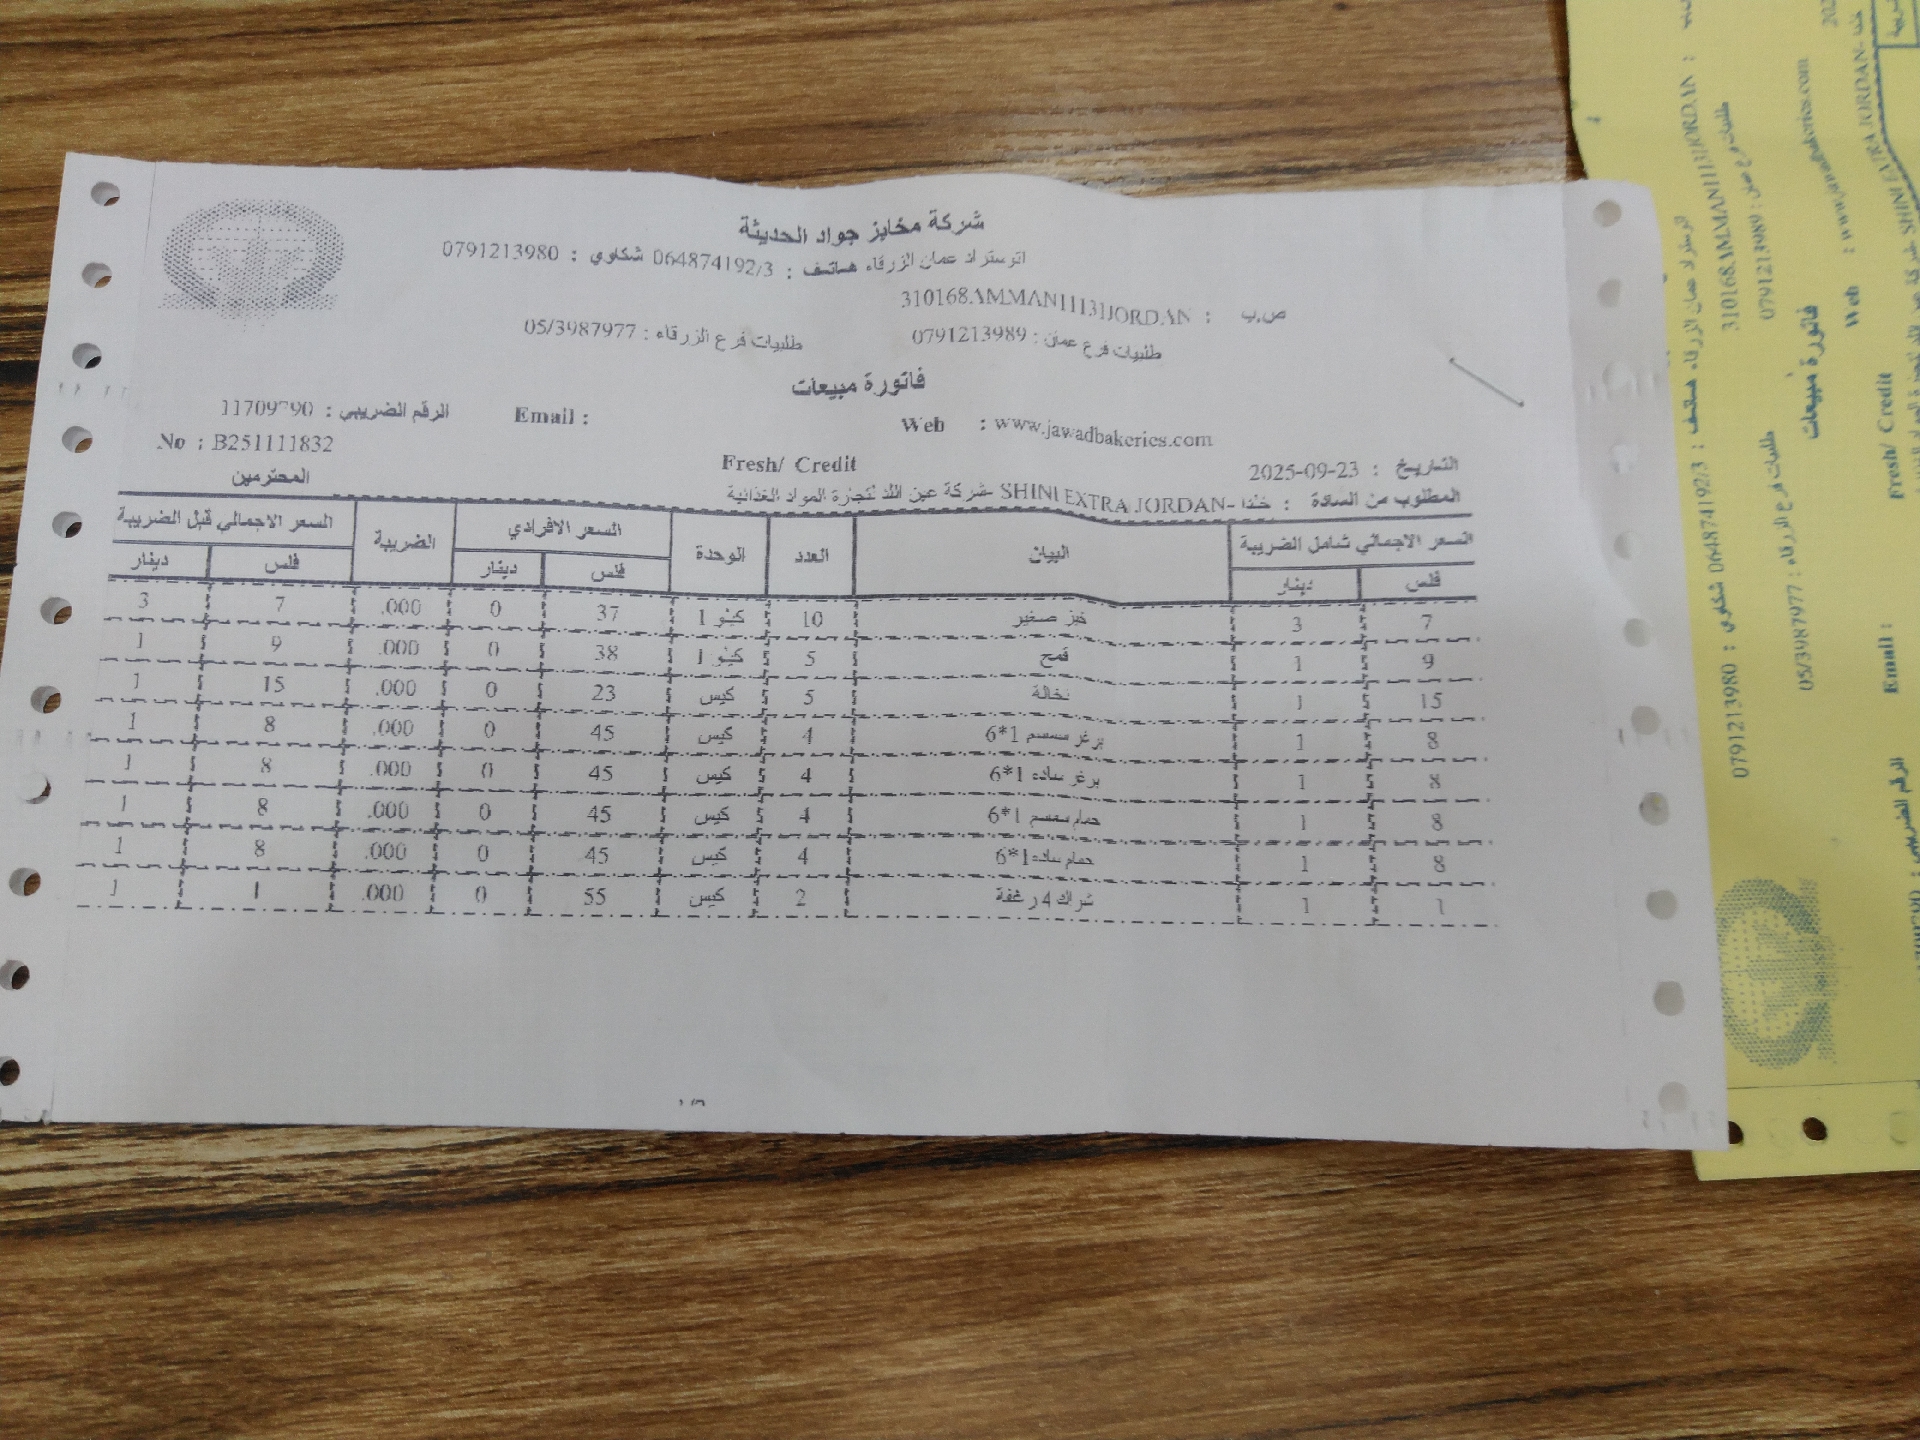 شركة مخابز جواد الحديثة
اتوستراد عمان الزرقاء هاتف : 064874192/3 شكاوي : 0791213980
ص.ب : 310168.AMMAN11131JORDAN
طلبيات فرع عمان : 0791213989 طلبيات فرع الزرقاء : 05/3987977
فاتورة مبيعات
Web : www.jawadbakeries.com Email : الرقم الضريبي :
No : B251111832
التاريخ : 2025-09-23 Fresh/ Credit
المطلوب من السادة : خلدا -SHINI EXTRA JORDAN -شركة عين اللد لتجارة المواد الغذائية المحترمين
السعر الاجمالي شامل الضريبة البيان العدد الوحدة السعر الافرادي الضريبة السعر الاجمالي قبل الضريبة
فلس دينار فلس دينار فلس دينار
7 3 خبز صغير 10 كيلو 1 37 0 .000 7 3
9 1 قمح 5 كيلو 1 38 0 .000 9 1
15 1 نخالة 5 كيس 23 0 .000 15 1
8 1 برغر سمسم 1*6 4 كيس 45 0 .000 8 1
8 1 برغر ساده 1*6 4 كيس 45 0 .000 8 1
8 1 حمام سمسم 1*6 4 كيس 45 0 .000 8 1
8 1 حمام ساده 1*6 4 كيس 45 0 .000 8 1
1 1 شراك 4 رغفة 2 كيس 55 0 .000 1 1
اتوستراد عمان الزرقاء هاتف : 064874192/3 شكاوي : 0791213980
310168.AMMAN11131JORDAN :
طلبيات فرع عمان : 0791213989
طلبيات فرع الزرقاء : 05/3987977
فاتورة مبيعات
Web : www.jawadbakeries.com
Email :
الرقم الضريبي :
Fresh/ Credit
SHINI EXTRA JORDAN-